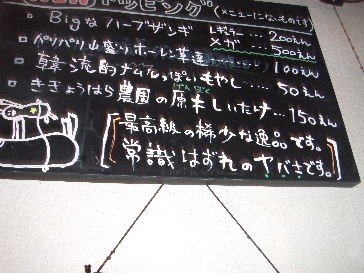 トッピング (メニューにないものです)
□ Bigな ハーブザンギ レギラー…200えん
メガ …500えん
□ パリパリ山盛りホーレン草達 100えん
□ 韓流的ナムルっぽいもやし… 50えん
□ ききょうはら農園の原木しいたけ…150えん
げんぼく
最高級の稀少な逸品です。
常識はずれのヤバさです。